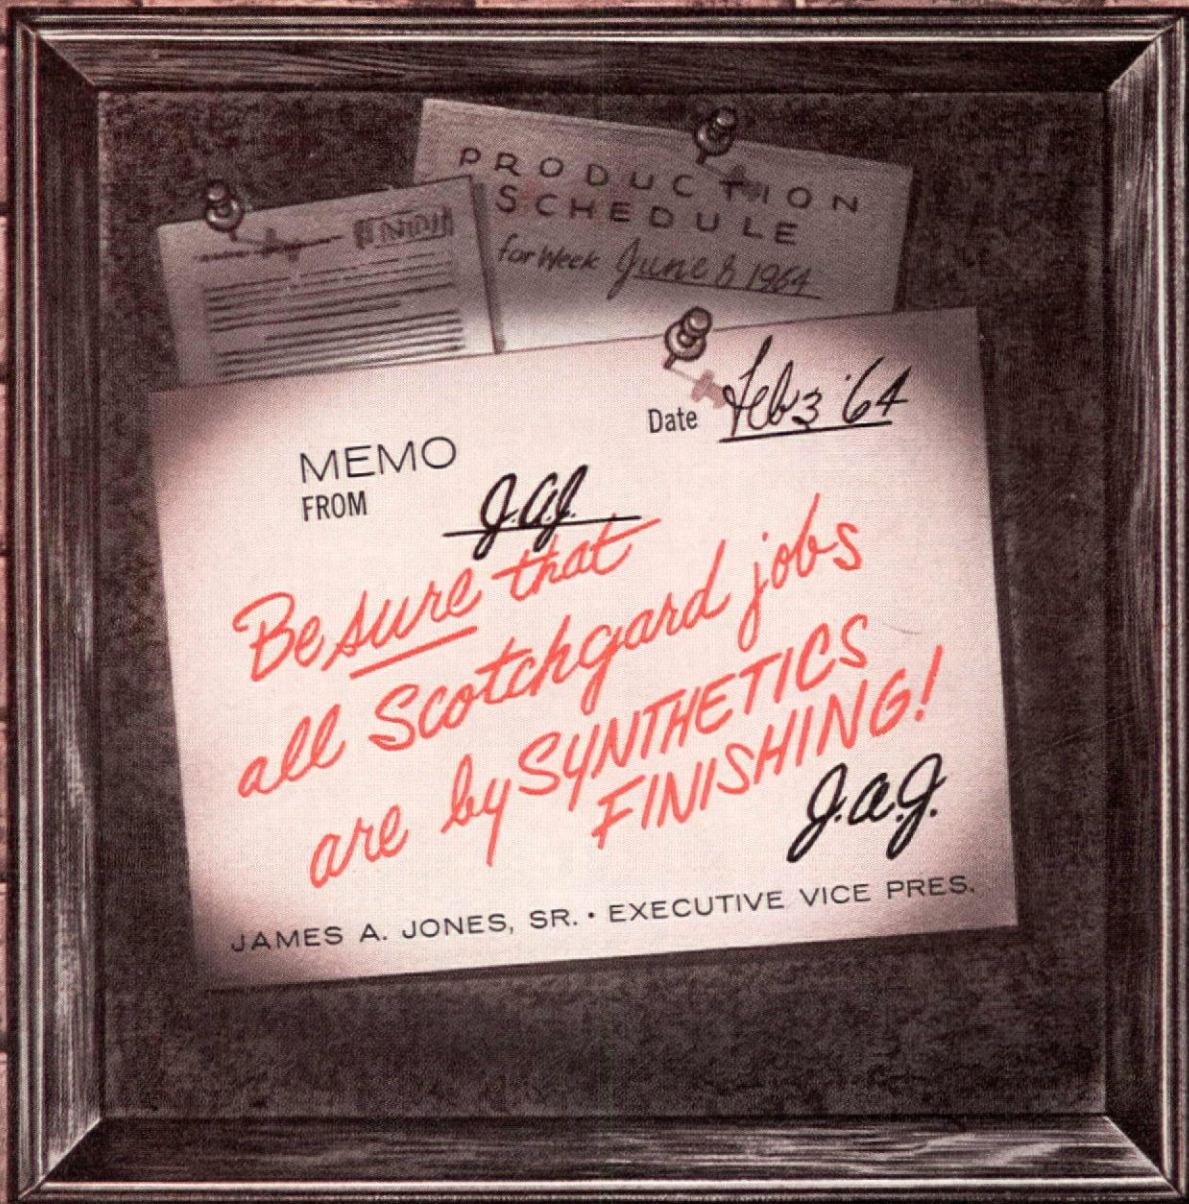 PRODUCTION
SCHEDULE
for Week June 8 1964
Date Feb 3 '64
MEMO
FROM J.A.J.
Be sure that
all Scotchgard jobs
are by SYNTHETICS
FINISHING!
J.A.J.
JAMES A. JONES, SR. • EXECUTIVE VICE PRES.